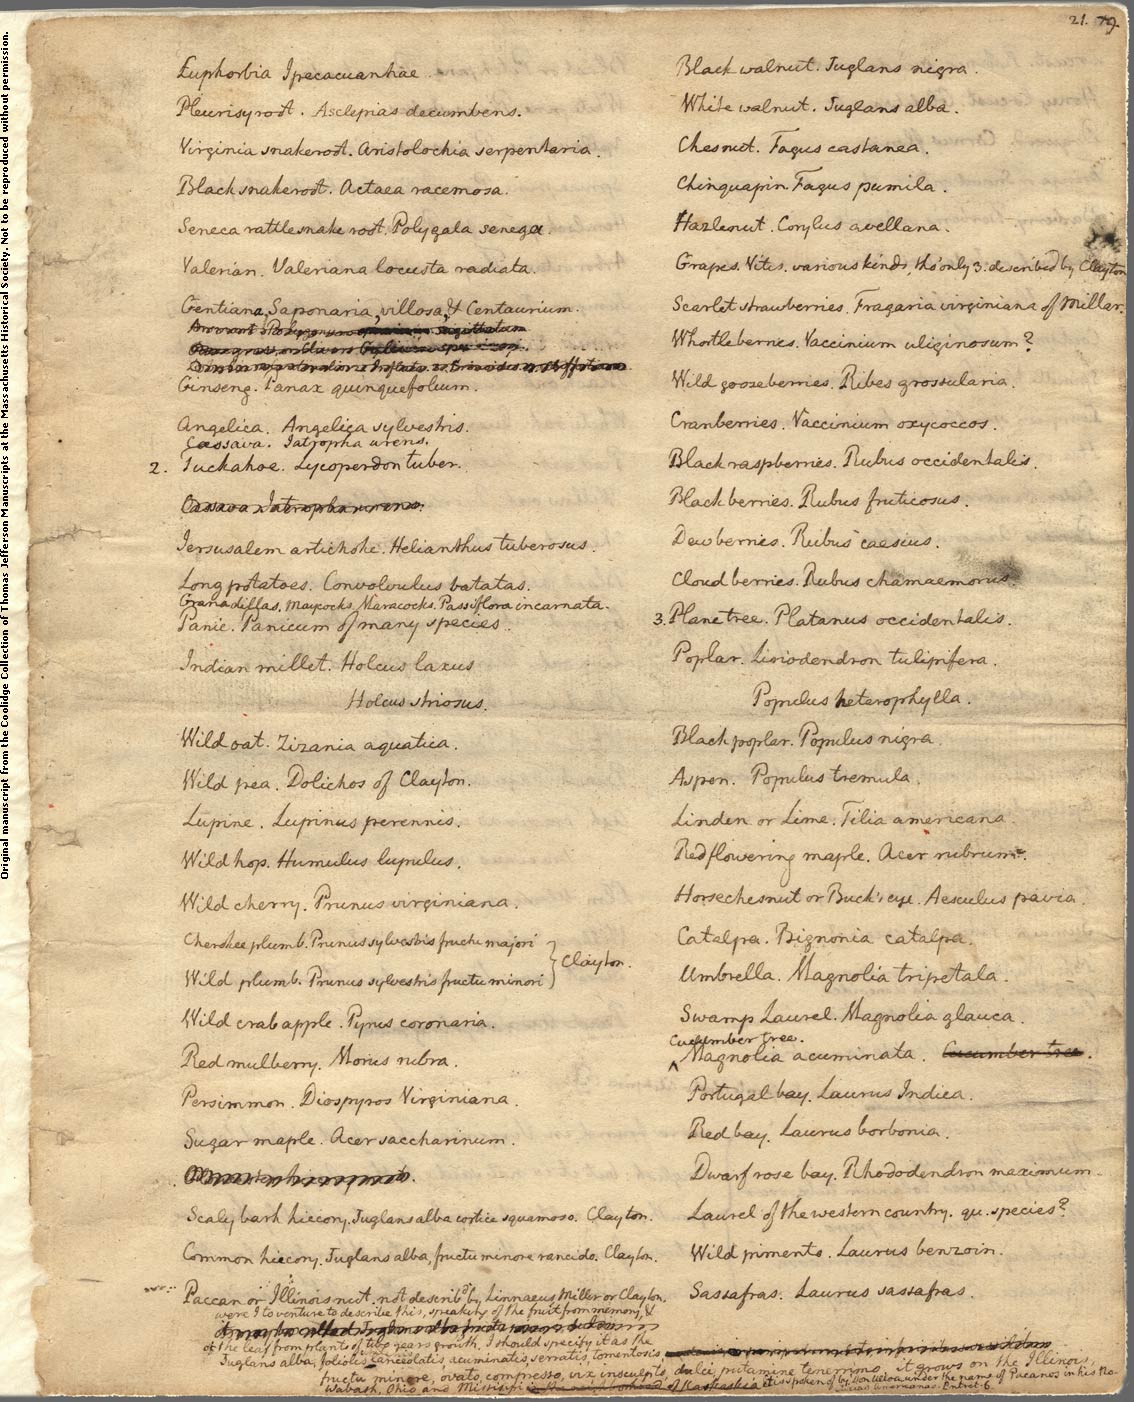 21. 79.
Euphorbia Ipecacuanhae.
Pleurisy root. Asclepias decumbens.
Virginia snakeroot. Aristolochia serpentaria.
Black snakeroot. Actaea racemosa.
Seneca rattlesnake root. Polygala senega.
Valerian. Valeriana locusta radiata.
Gentiana, Saponaria, villosa, & Centaurium.
Ginseng. Panax quinquefolium.
Angelica. Angelica sylvestris.
Cassava. Iatropha urens.
2. Tuckahoe. Lycoperdon tuber.
Cassava. Iatropha urens.
Jersusalem artichoke. Helianthus tuberosus.
Long potatoes. Convolvulus batatas.
Granadillas, Maycocks, Maracocks. Passiflora incarnata.
Panic. Panicum of many species.
Indian millet. Holcus laxus
Holcus striosus.
Wild oat. Zizania aquatica.
Wild pea. Dolichos of Clayton.
Lupine. Lupinus perennis.
Wild hop. Humulus lupulus.
Wild cherry. Prunus virginiana.
Cherokee plumb. Prunus sylvestris fructu majori
Clayton.
Wild plumb. Prunus sylvestris fructu minori
Wild crab apple. Pyrus coronaria.
Red mulberry. Morus rubra.
Persimmon. Diospyros Virginiana.
Sugar maple. Acer saccharinum.
Scaly bark hiccory. Juglans alba cortice squamoso. Clayton.
Common hiccory. Juglans alba, fructu minore rancido. Clayton.
Paccan or Illinois nut. not describd by Linnaeus Miller or Clayton.
were I to venture to describe this, speaking of the fruit from memory, &
of the leaf from plants of two years growth, I should specify it as the
Juglans alba, foliolis lanceolatis, acuminatis, serratis, tomentosis
fructu minore, ovato, compresso, vix insculpto, dulci, putamine tenerrimo. it grows on the Illinois,
Wabash, Ohio, and Missisipi. it is spoken of by Don Ulloa under the name of Pacanos in his No-
Americanas. Entret. 6.
Black walnut. Juglans nigra.
White walnut. Juglans alba.
Chesnut. Fagus castanea.
Chinquapin. Fagus pumila.
Hazlenut. Corylus avellana.
Grapes. Vitis. various kinds, tho' only 3. described by Clayton
Scarlet strawberries. Fragaria virginiana of Millar.
Whortleberries. Vaccinium uliginosum?
Wild gooseberries. Ribes grossularia.
Cranberries. Vaccinium oxycoccos.
Black raspberries. Rubus occidentalis.
Black berries. Rubus fruticosus.
Dewberries. Rubus caesius.
Cloud berries. Rubus chamaemorus.
3. Plane tree. Platanus occidentalis.
Poplar. Liriodendron tulipifera.
Populus heterophylla.
Black poplar. Populus nigra.
Aspen. Populus tremula.
Linden or Lime. Tilia americana.
Red flowering maple. Acer rubrum.
Horse chesnut or Buck's eye. Aesculus pavia.
Catalpa. Bignonia catalpa.
Umbrella. Magnolia tripetala.
Swamp Laurel. Magnolia glauca.
Cucumber tree.
Magnolia acuminata. Cucumber tree.
Portugal bay. Laurus Indica.
Red bay. Laurus borbonia.
Dwarf rose bay. Rhododendron maximum.
Laurel of the western country. qu. species?
Wild pimento. Laurus benzoin.
Sassafras. Laurus sassafras.
Original manuscript from the Coolidge Collection of Thomas Jefferson Manuscripts at the Massachusetts Historical Society. Not to be reproduced without permission.